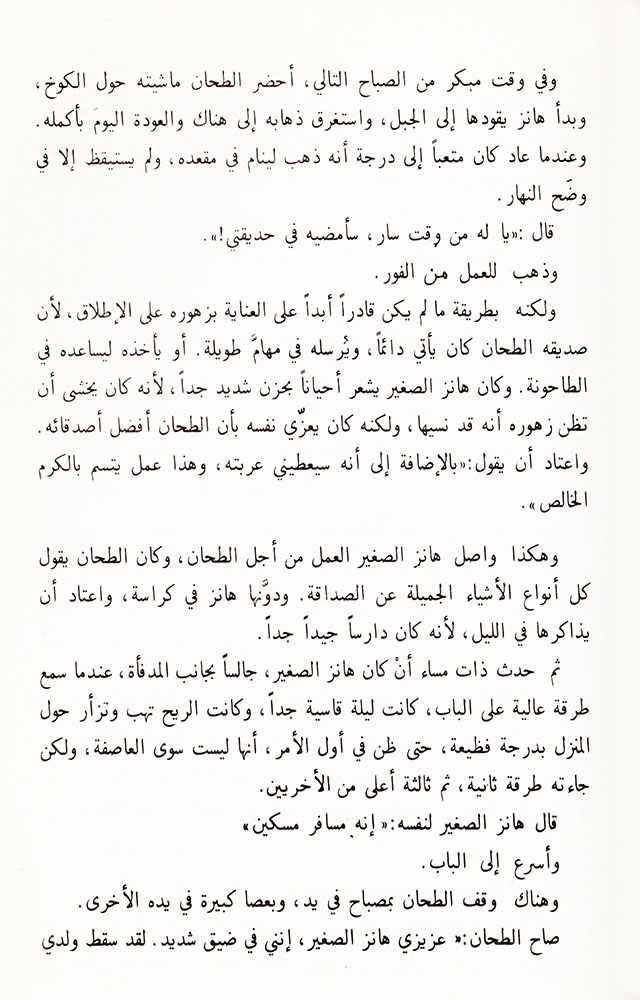 وفي وقت مبكر من الصباح التالي، أحضر الطحان ماشيته حول الكوخ،
وبدأ هانز يقودها إلى الجبل، واستغرق ذهابه إلى هناك والعودة اليومَ بأكمله.
وعندما عاد كان متعباً إلى درجة أنه ذهب لينام في مقعده، ولم يستيقظ إلا في
وضَح النهار.
قال :«يا له من وقت سار، سأمضيه في حديقتي!».
وذهب للعمل من الفور.
ولكنه بطريقة ما لم يكن قادراً أبداً على العناية بزهوره على الإطلاق، لأن
صديقه الطحان كان يأتي دائماً، ويُرسله في مهامَّ طويلة. أو يأخذه ليساعده في
الطاحونة. وكان هانز الصغير يشعر أحياناً بحزن شديد جداً، لأنه كان يخشى أن
تظن زهوره أنه قد نسيها، ولكنه كان يعزّي نفسه بأن الطحان أفضل أصدقائه.
واعتاد أن يقول:«بالإضافة إلى أنه سيعطيني عربته، وهذا عمل يتسم بالكرم
الخالص».
وهكذا واصل هانز الصغير العمل من أجل الطحان، وكان الطحان يقول
كل أنواع الأشياء الجميلة عن الصداقة. ودوَّنها هانز في كراسة، واعتاد أن
يذاكرها في الليل، لأنه كان دارساً جيداً جداً.
ثم حدث ذات مساء أنْ كان هانز الصغير، جالساً بجانب المدفأة، عندما سمع
طرقة عالية على الباب، كانت ليلة قاسية جداً، وكانت الريح تهب وتزأر حول
المنزل بدرجة فظيعة، حتى ظن في أول الأمر، أنها ليست سوى العاصفة، ولكن
جاءته طرقة ثانية، ثم ثالثة أعلى من الأخريين.
قال هانز الصغير لنفسه:«إنه مسافر مسكين»
وأسرع إلى الباب.
وهناك وقف الطحان بمصباح في يد، وبعصا كبيرة في يده الأخرى.
صاح الطحان:« عزيزي هانز الصغير، إنني في ضيق شديد. لقد سقط ولدي